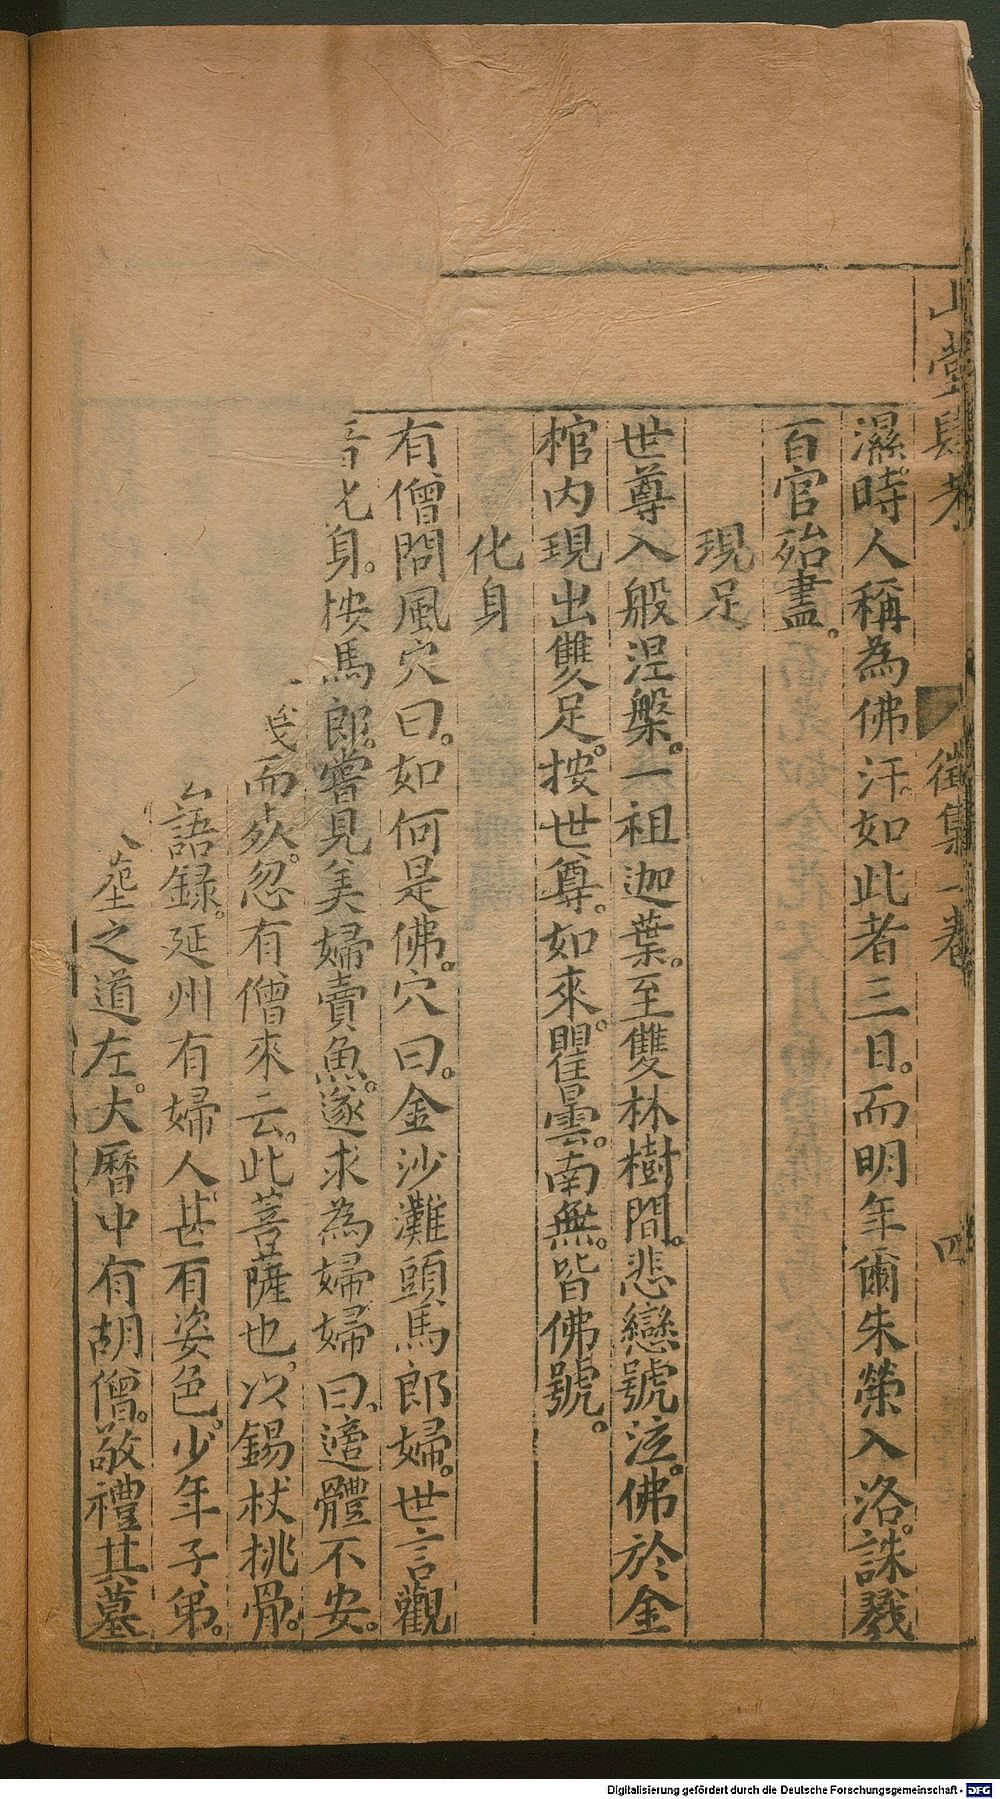 山堂肆考 徵集一卷 四
濕。時人稱為佛汗。如此者三日。而明年爾朱榮入洛。誅戮
百官殆盡。
現足
世尊入般涅槃。一祖迦葉。至雙林樹間。悲戀號泣。佛於金
棺内現出雙足。按世尊。如來。瞿曇。南無。皆佛號。
化身
有僧問風穴曰。如何是佛。穴曰。金沙灘頭馬郎婦。世言觀
音化身。按馬郎。嘗見美婦賣魚。遂求為婦婦曰。適體不安。
而焱。忽有僧來云。此菩薩也。以錫杖挑骨。
語録。延州有婦人。甚有姿色。少年子弟。
之道左。大曆中有胡僧。敬禮其墓
Digitalisierung gefördert durch die Deutsche Forschungsgemeinschaft - DFG